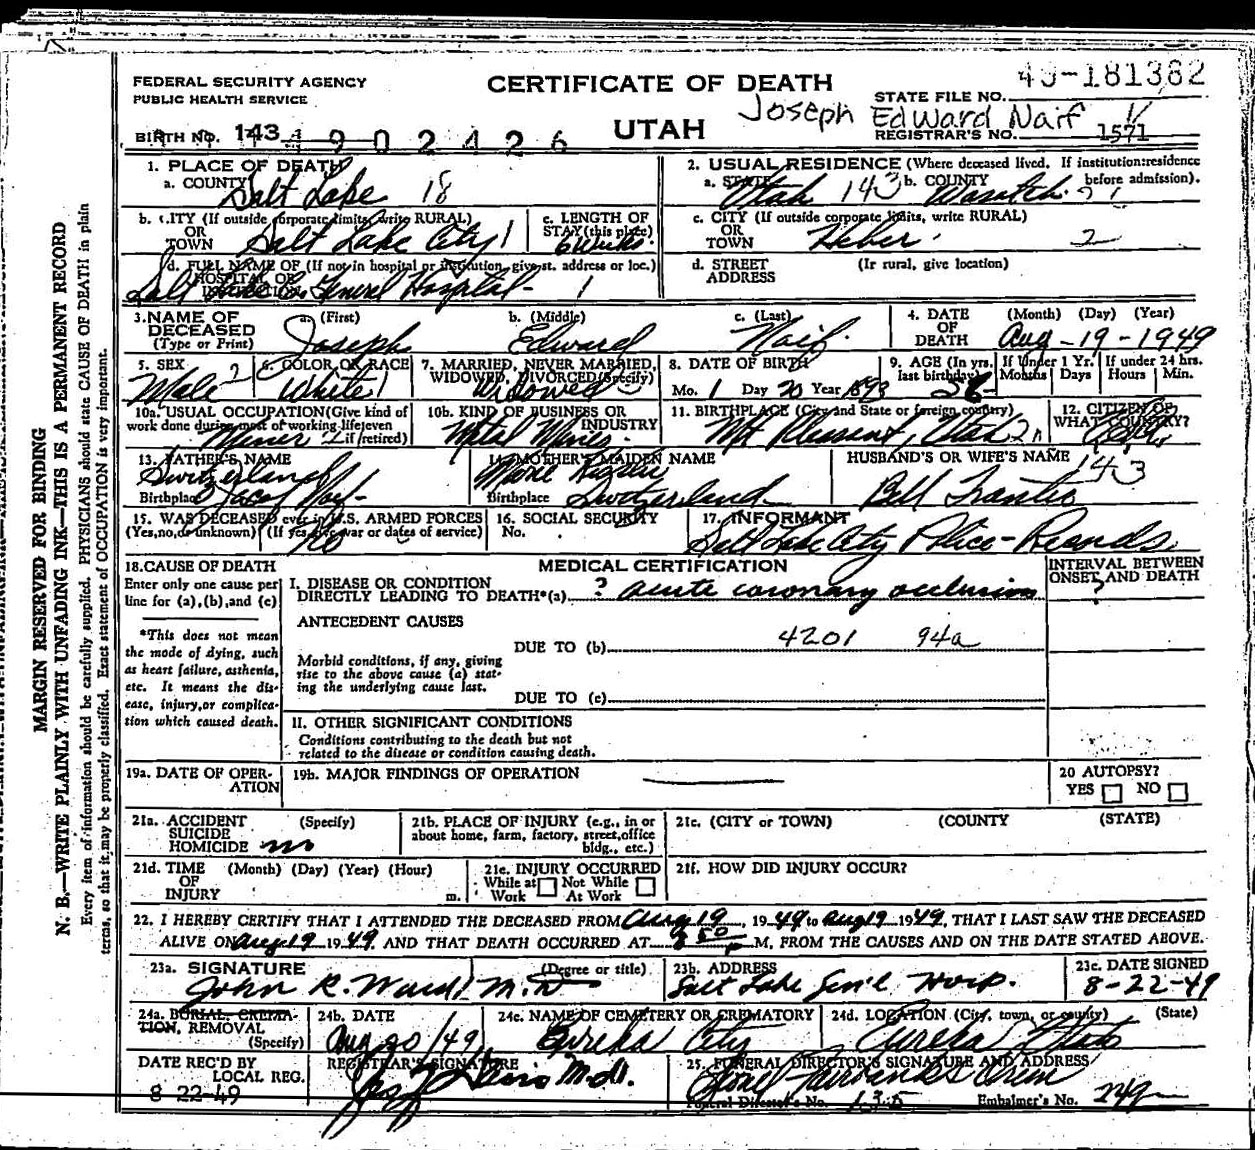 FEDERAL SECURITY AGENCY
PUBLIC HEALTH SERVICE
CERTIFICATE OF DEATH
UTAH
49-181382
STATE FILE NO.
Joseph Edward Naif
REGISTRAR'S NO. 1571
BIRTH NO. 143
4 9 0 2 4 2 6
1. PLACE OF DEATH
a. COUNTY Salt Lake 18
2. USUAL RESIDENCE (Where deceased lived. If institution:residence before admission).
a. STATE Utah 143 b. COUNTY Wasatch
b. CITY (If outside corporate limits, write RURAL) OR TOWN Salt Lake City 1
c. LENGTH OF STAY (this place) 6 Weeks.
c. CITY (If outside corporate limits, write RURAL) OR TOWN Heber 2
d. FULL NAME OF (If not in hospital or institution, give st. address or loc.) HOSPITAL OR INSTITUTION Salt Lake Co General Hospital - 1
d. STREET ADDRESS (Ir rural, give location)
3. NAME OF DECEASED (Type or Print)
a. (First) Joseph
b. (Middle) Edward
c. (Last) Naif
4. DATE OF DEATH (Month) (Day) (Year) Aug - 19 - 1949
5. SEX Male
6. COLOR OR RACE White 1
7. MARRIED, NEVER MARRIED, WIDOWED, DIVORCED (Specify) Widowed
8. DATE OF BIRTH Mo. 1 Day 20 Year 1893
9. AGE (In yrs. last birthday)
If Under 1 Yr. Months Days
If under 24 hrs. Hours Min.
10a. USUAL OCCUPATION (Give kind of work done during most of working life, even if retired) Miner
10b. KIND OF BUSINESS OR INDUSTRY Metal Mines.
11. BIRTHPLACE (City and State or foreign country) Mt Pleasant, Utah
12. CITIZEN OF WHAT COUNTRY?
13. FATHER'S NAME Jacob Naif
Birthplace Switzerland
14. MOTHER'S MAIDEN NAME
Birthplace Switzerland
HUSBAND'S OR WIFE'S NAME 143
Bell
15. WAS DECEASED ever in U.S. ARMED FORCES (Yes, no, or unknown) (If yes, give war or dates of service) no
16. SOCIAL SECURITY No.
17. INFORMANT
Salt Lake City Police - Records
18. CAUSE OF DEATH
Enter only one cause per line for (a), (b), and (c)
*This does not mean the mode of dying, such as heart failure, asthenia, etc. It means the disease, injury, or complication which caused death.
MEDICAL CERTIFICATION
INTERVAL BETWEEN ONSET AND DEATH
?
I. DISEASE OR CONDITION DIRECTLY LEADING TO DEATH*(a) ? acute coronary occlusion
ANTECEDENT CAUSES
DUE TO (b) 4201 94a
Morbid conditions, if any, giving rise to the above cause (a) stating the underlying cause last.
DUE TO (c)
II. OTHER SIGNIFICANT CONDITIONS
Conditions contributing to the death but not related to the disease or condition causing death.
19a. DATE OF OPERATION
19b. MAJOR FINDINGS OF OPERATION
20 AUTOPSY?
YES NO
21a. ACCIDENT SUICIDE HOMICIDE (Specify) no
21b. PLACE OF INJURY (e.g., in or about home, farm, factory, street, office bldg., etc.)
21c. (CITY or TOWN) (COUNTY) (STATE)
21d. TIME OF INJURY (Month) (Day) (Year) (Hour) m.
21e. INJURY OCCURRED
While at Work Not While At Work
21f. HOW DID INJURY OCCUR?
22. I HEREBY CERTIFY THAT I ATTENDED THE DECEASED FROM Aug 19, 1949 to Aug 19 1949, THAT I LAST SAW THE DECEASED
ALIVE ON Aug 19 1949, AND THAT DEATH OCCURRED AT 8 50 P M, FROM THE CAUSES AND ON THE DATE STATED ABOVE.
23a. SIGNATURE (Degree or title)
John R. Ward M.D
23b. ADDRESS
Salt Lake Gen'l Hosp.
23c. DATE SIGNED
8-22-49
24a. BURIAL, CREMATION, REMOVAL (Specify)
24b. DATE Aug 20/49
24c. NAME OF CEMETERY OR CREMATORY
Eureka City
24d. LOCATION (City, town, or county) (State)
Eureka Utah
DATE REC'D BY LOCAL REG.
8 22-49
REGISTRAR'S SIGNATURE
M.D.
25. FUNERAL DIRECTOR'S SIGNATURE AND ADDRESS
Fairbanks
Funeral Director's No. 135 Embalmer's No. 249
MARGIN RESERVED FOR BINDING
N. B.—WRITE PLAINLY WITH UNFADING INK—THIS IS A PERMANENT RECORD
Every item of information should be carefully supplied. PHYSICIANS should state CAUSE OF DEATH in plain
terms, so that it may be properly classified. Exact statement of OCCUPATION is very important.